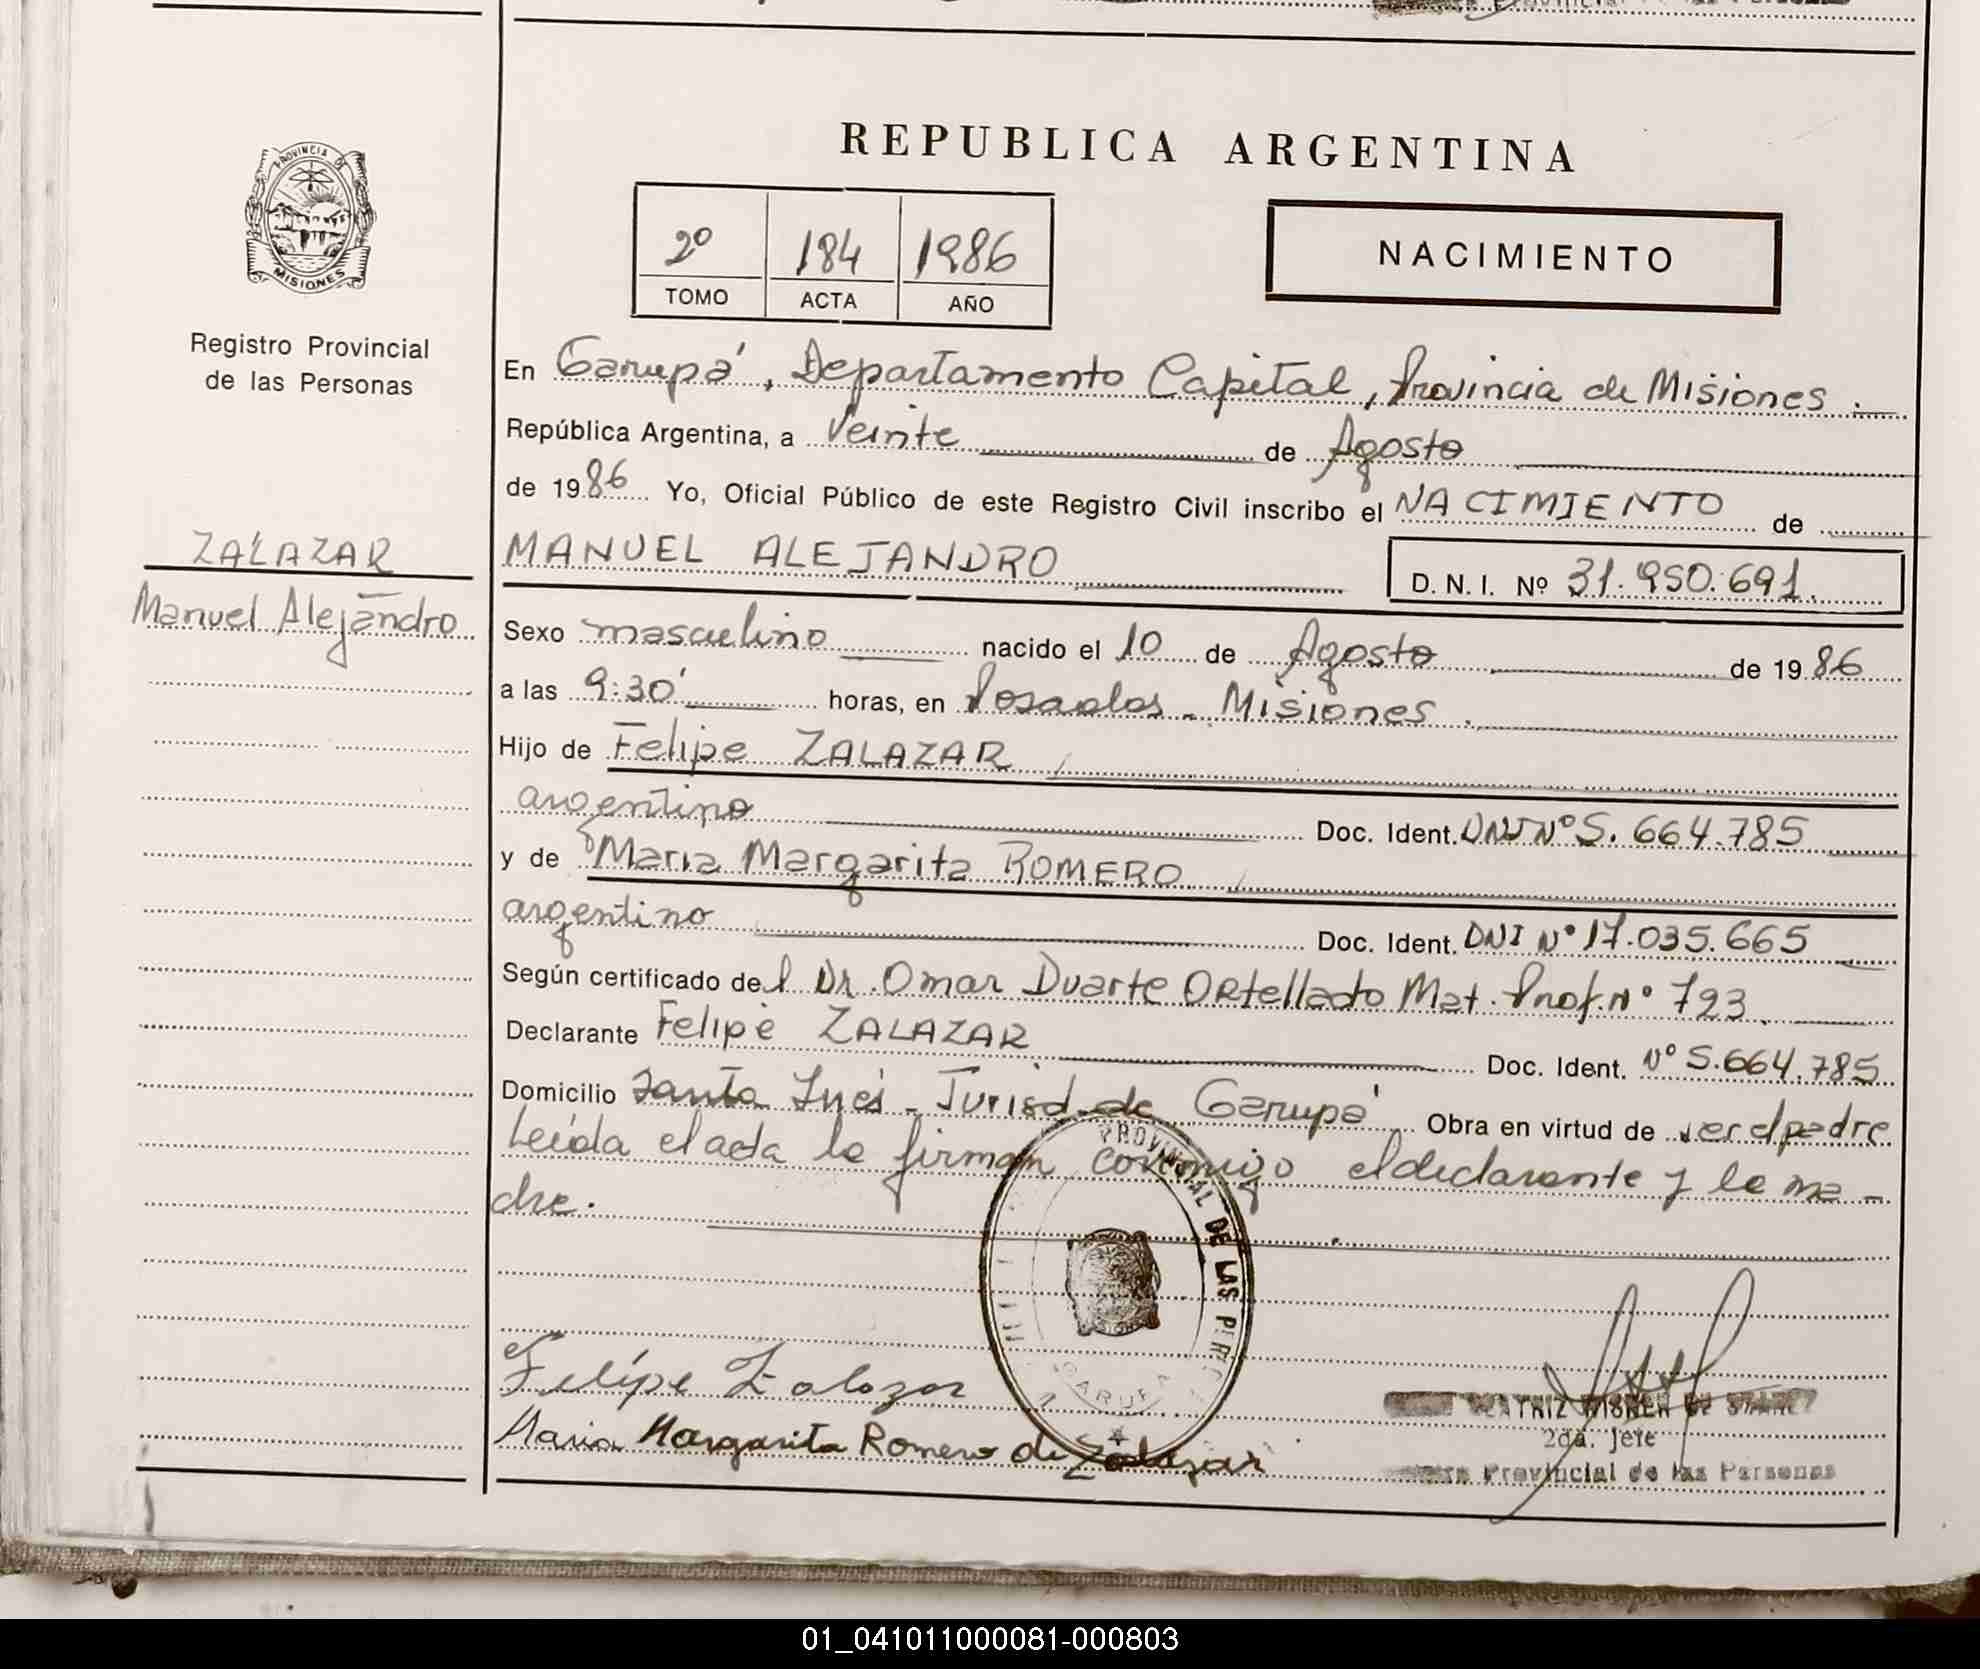 REPUBLICA ARGENTINA
PROVINCIA DE
MISIONES
Registro Provincial
de las Personas
2º 184 1986
TOMO ACTA AÑO
NACIMIENTO
En Garupá, Departamento Capital, Provincia de Misiones.
República Argentina, a Veinte de Agosto
de 1986 Yo, Oficial Público de este Registro Civil inscribo el NACIMIENTO de
ZALAZAR
Manuel Alejandro
MANUEL ALEJANDRO
D. N. I. Nº 31.950.691.
Sexo masculino nacido el 10 de Agosto de 1986
a las 9:30' horas, en Posadas - Misiones.
Hijo de Felipe ZALAZAR
argentino Doc. Ident. DNI Nº 5.664.785
y de Maria Margarita ROMERO
argentino Doc. Ident. DNI Nº 17.035.665
Según certificado del Dr. Omar Duarte Ortellado Mat. Prof. Nº 723
Declarante Felipe ZALAZAR Doc. Ident. Nº 5.664.785
Domicilio Santa Inés - Jurisd. de Garupá Obra en virtud de ser el padre
Leída el acta la firman conmigo el declarante y la ma-
dre.
PROVINCIAL DE LAS PER
GARUPA
Felipe Zalazar
Maria Margarita Romero de Zalazar
2da. Jefe
Provincial de las Personas
01_041011000081-000803